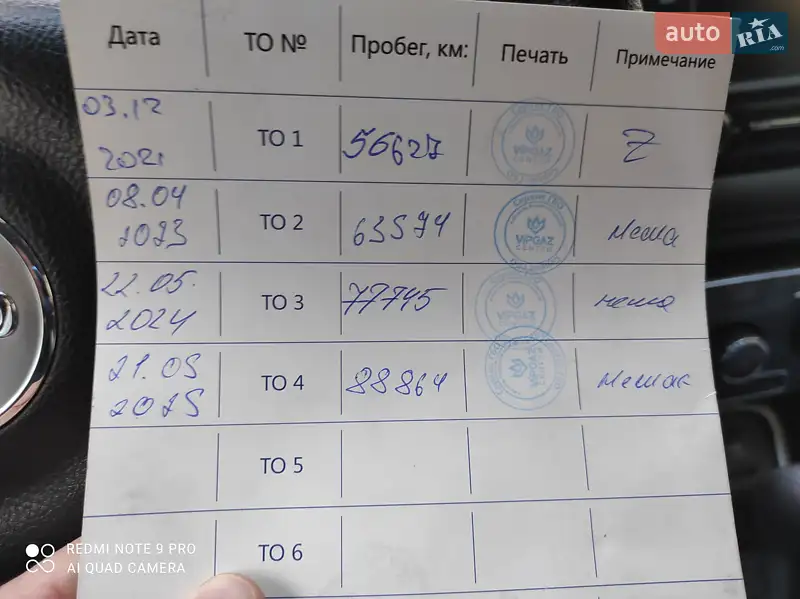 Дата ТО № Пробег, км: Печать Примечание
auto RIA .com
03.12 2021 ТО 1 56627 VIPGAZ Z
08.04 2023 ТО 2 63574 VIPGAZ
22.05. 2024 ТО 3 77745 VIPGAZ
21.05 2025 ТО 4 88864
ТО 5
ТО 6
REDMI NOTE 9 PRO
AI QUAD CAMERA